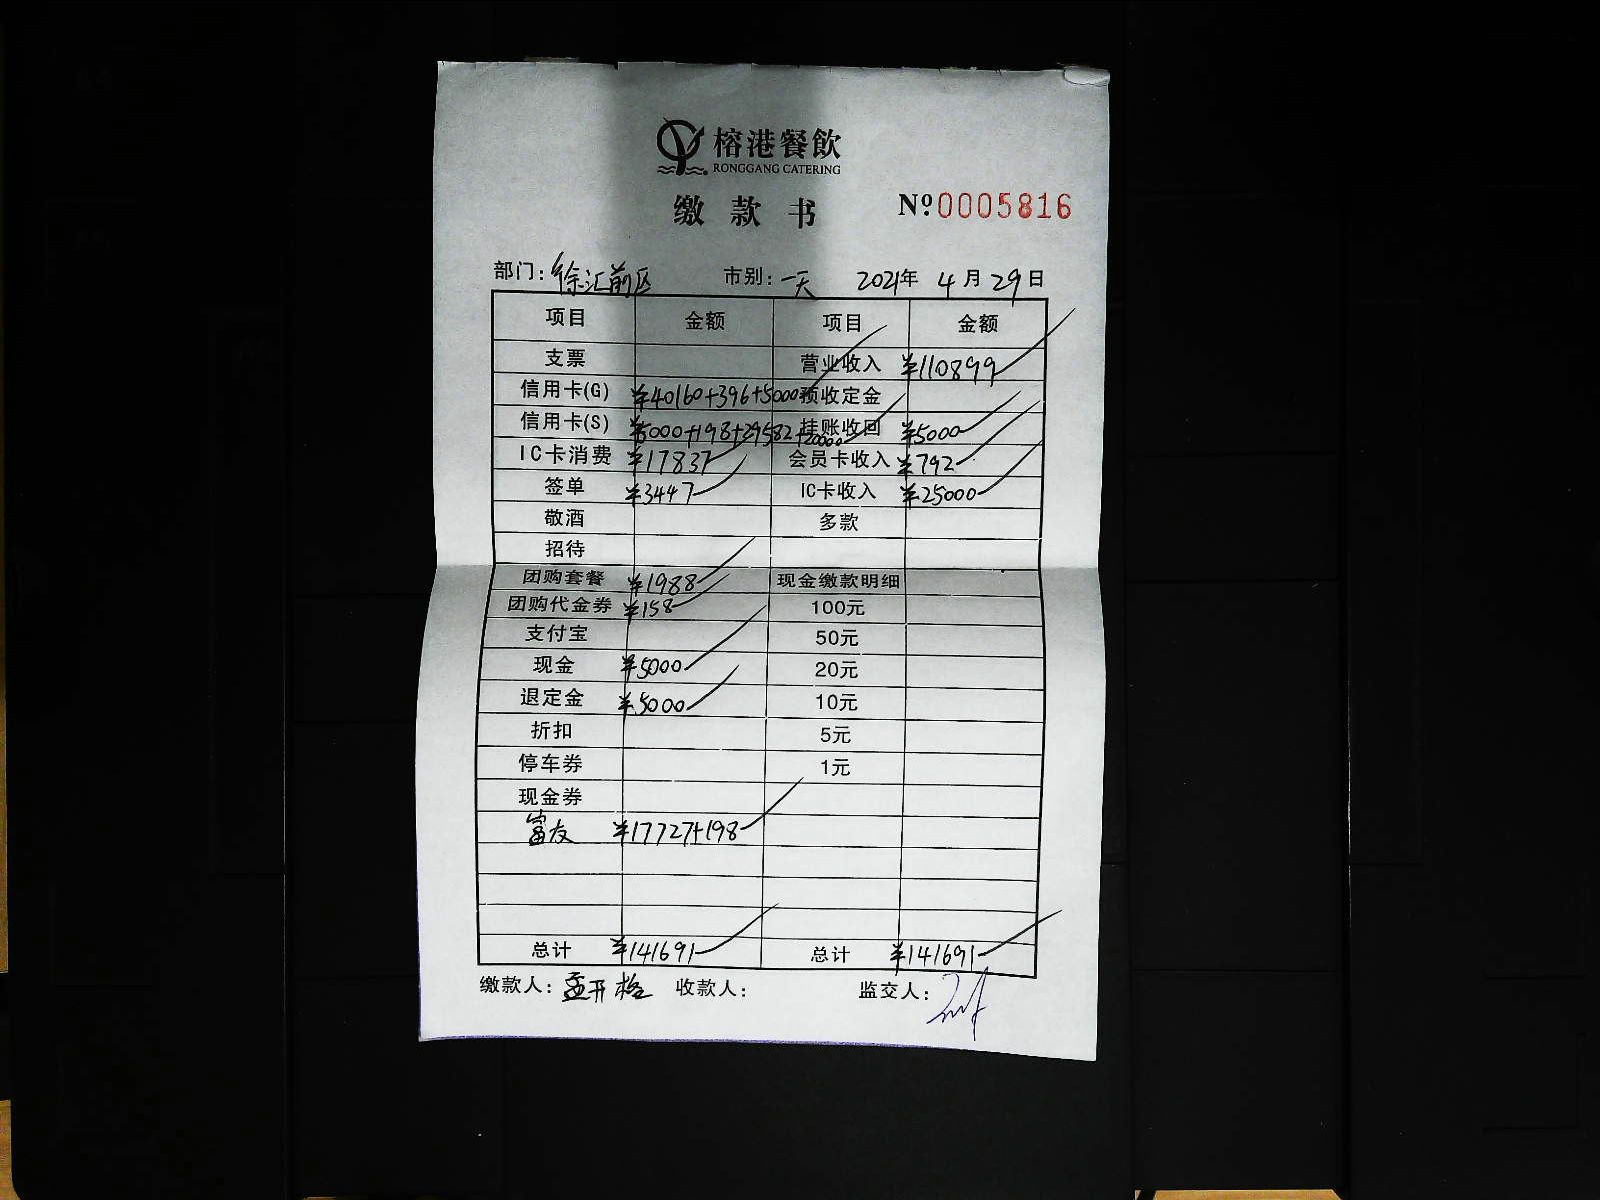 榕港餐飲
RONGGANG CATERING
缴款书
№0005816
部门: 徐汇前区 市别: 一天 2021年 4月 29日
项目 金额 项目 金额
支票 营业收入 ¥110899
信用卡(G) ¥40160+396+5000 预收定金
信用卡(S) ¥5000+198+29582+20000 挂账收回 ¥5000
IC卡消费 ¥17837 会员卡收入 ¥792
签单 ¥3447 IC卡收入 ¥25000
敬酒 多款
招待
团购套餐 ¥1988 现金缴款明细
团购代金券 ¥158 100元
支付宝 50元
现金 ¥5000 20元
退定金 ¥5000 10元
折扣 5元
停车券 1元
现金券
富友 ¥17727+198
总计 ¥141691 总计 ¥141691
缴款人: 孟开格 收款人: 监交人: